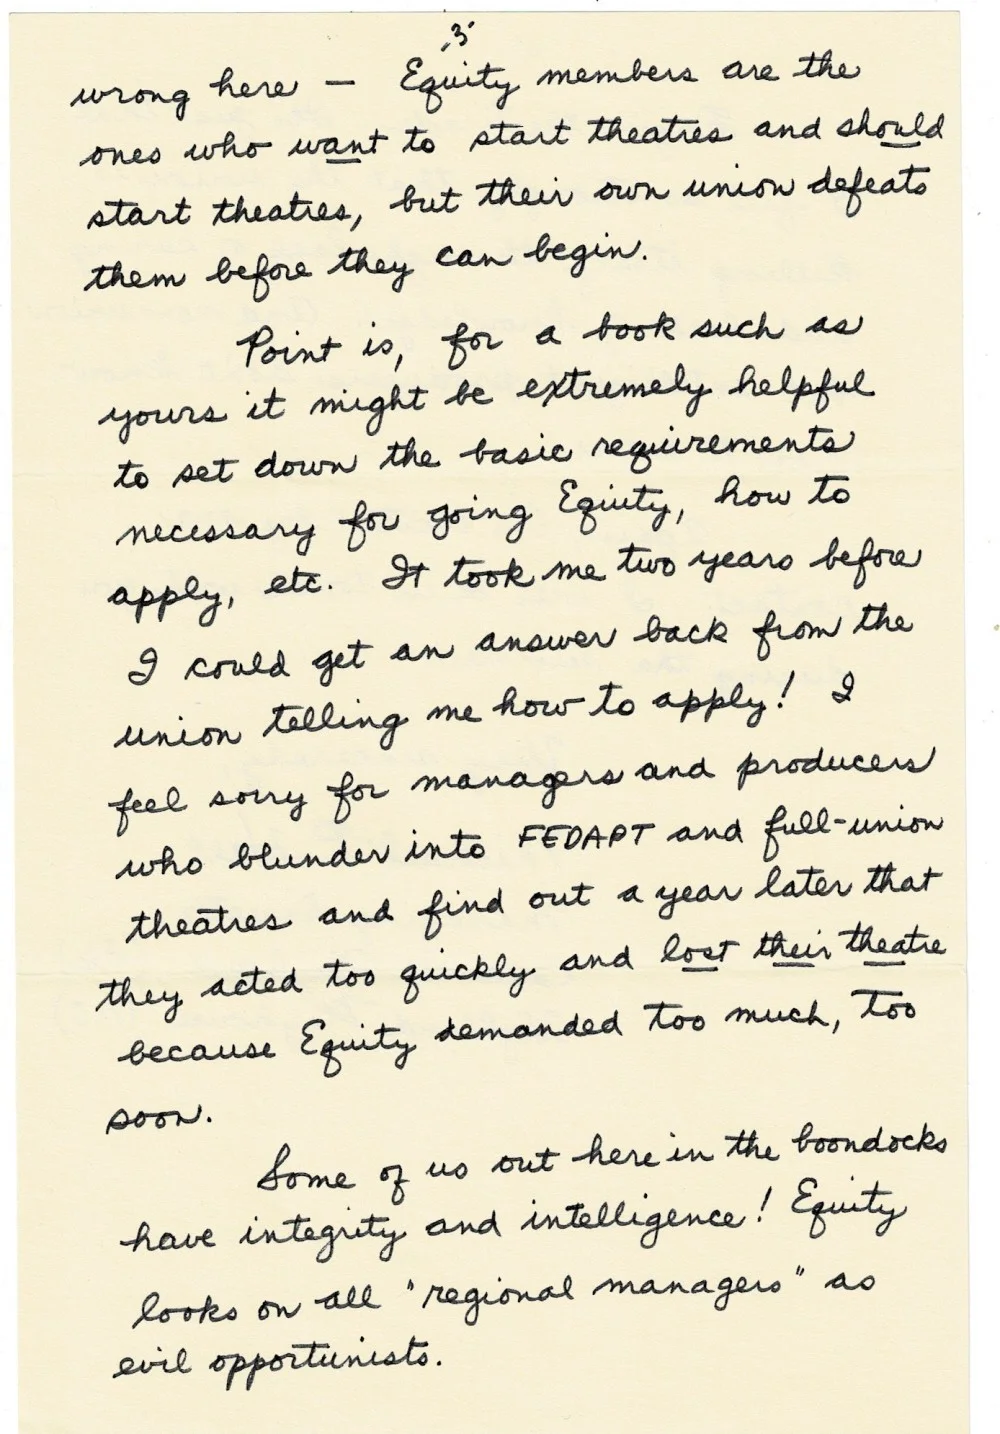 -3-
wrong here — Equity members are the
ones who want to start theatres and should
start theatres, but their own union defeats
them before they can begin.
Point is, for a book such as
yours it might be extremely helpful
to set down the basic requirements
necessary for going Equity, how to
apply, etc. It took me two years before
I could get an answer back from the
union telling me how to apply! I
feel sorry for managers and producers
who blunder into FEDAPT and full-union
theatres and find out a year later that
they acted too quickly and lost their theatre
because Equity demanded too much, too
soon.
Some of us out here in the boondocks
have integrity and intelligence! Equity
looks on all "regional managers" as
evil opportunists.